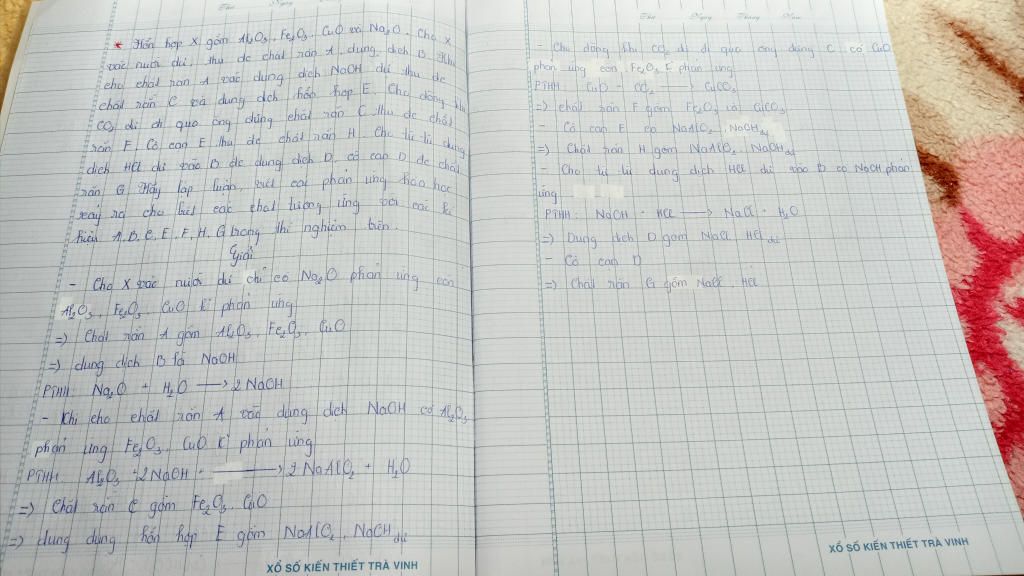 Thứ Ngày
* Hỗn hợp X gồm Al₂O₃, Fe₂O₃, CuO và Na₂O. Cho X
vào nước dư, thu dc chất rắn A, dung dịch B. Khi
cho chất rắn A vào dung dịch NaOH dư thu dc
chất rắn C và dung dịch hỗn hợp E. Cho dòng khí
CO₂ dư đi qua ống đựng chất rắn C thu dc chất
rắn F. Cô cạn E thu dc chất rắn H. Cho từ từ dung
dịch HCl dư vào B dc dung dịch D, cô cạn D dc chất
rắn G. Hãy lập luận, viết các phản ứng hóa học
xảy ra cho biết các chất tương ứng với các kí
hiệu A, B, C, E, F, H, G trong thí nghiệm trên.
Giải
- Cho X vào nước dư chỉ có Na₂O phản ứng còn
Al₂O₃, Fe₂O₃, CuO k phản ứng
=> Chất rắn A gồm Al₂O₃, Fe₂O₃, CuO
=> dung dịch B là NaOH
PTHH: Na₂O + H₂O ⟶ 2 NaOH
- Khi cho chất rắn A vào dung dịch NaOH có Al₂O₃
phản ứng Fe₂O₃, CuO k phản ứng
PTHH: Al₂O₃ + 2 NaOH ⟶ 2 NaAlO₂ + H₂O
=> Chất rắn C gồm Fe₂O₃, CuO
=> dung dung hỗn hợp E gồm NaAlO₂, NaOH dư
XỔ SỐ KIẾN THIẾT TRÀ VINH
Thứ Ngày Tháng Năm
- Cho dòng khí CO₂ dư đi qua ống đựng C có CuO
phản ứng còn Fe₂O₃ k phản ứng
PTHH: CuO + CO₂ ⟶ CuCO₃
=> chất rắn F gồm Fe₂O₃ và CuCO₃
- Cô cạn E có NaAlO₂, NaOH dư
=> Chất rắn H gồm NaAlO₂, NaOH dư
- Cho từ từ dung dịch HCl dư vào B có NaOH phản
ứng
PTHH: NaOH + HCl ⟶ NaCl + H₂O
=> Dung dịch D gồm NaCl, HCl dư
- Cô cạn D
=> Chất rắn G gồm NaCl, HCl
XỔ SỐ KIẾN THIẾT TRÀ VINH